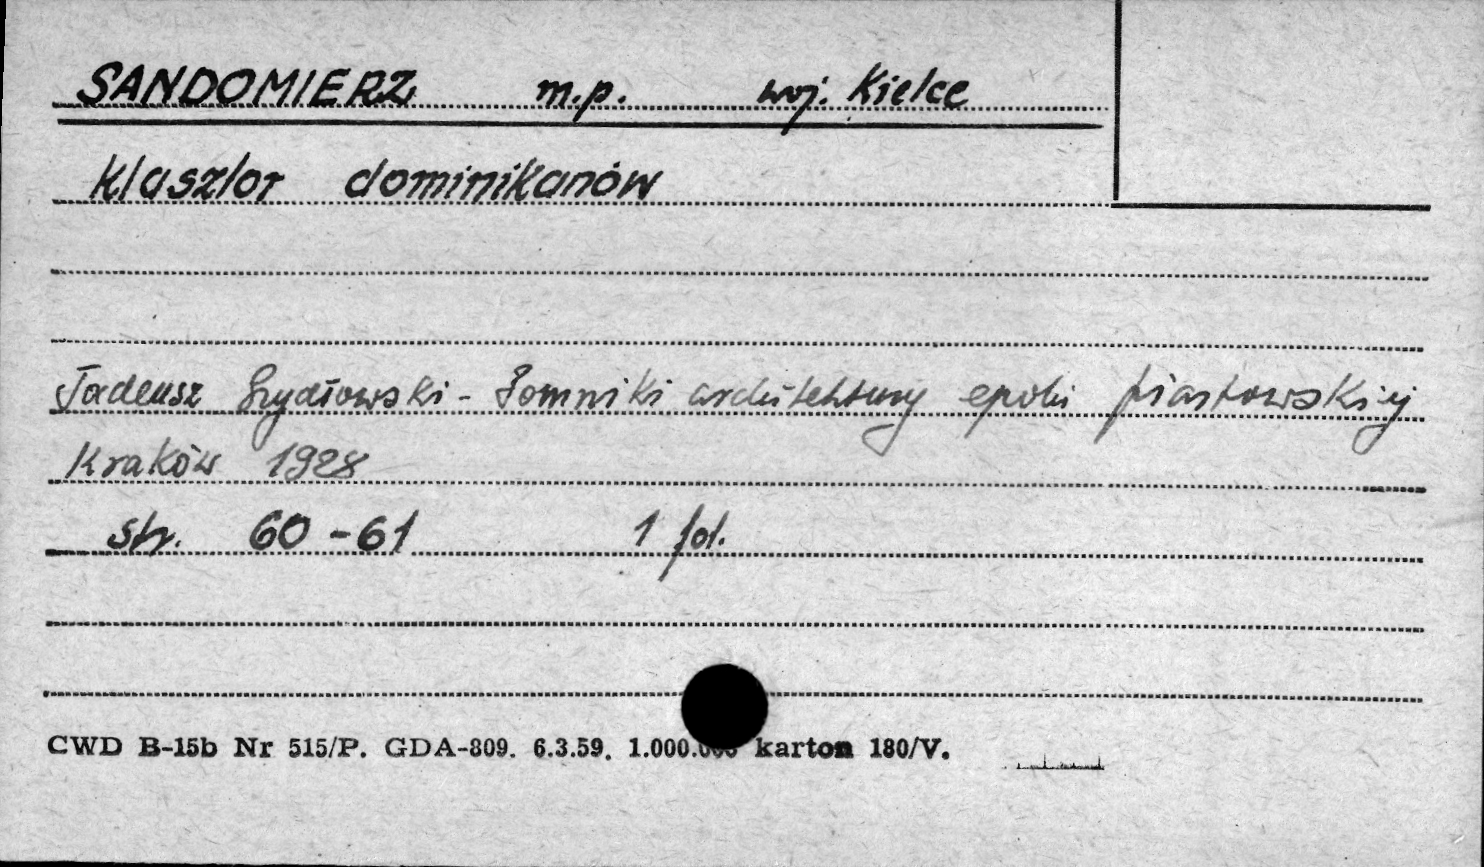 SANDOMIERZ m.p. woj. Kielce
Klasztor dominikanów
Tadeusz Szydłowski - Pomniki architektury epoki piastowskiej
Kraków 1928
str. 60 - 61 1 fot.
CWD B-15b Nr 515/P. GDA-809. 6.3.59. 1.000.000 karton 180/V.